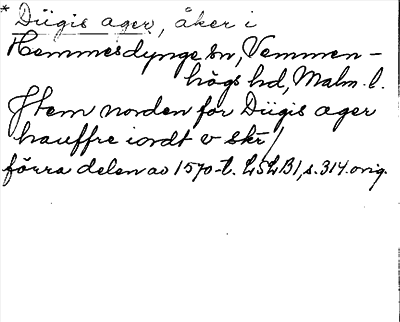 * Dügis ager, åker i
Hemmesdynge sn, Vemmen-
högs hd, Malm. l.
Jtem norden for Dügis ager
hauffre iordt v skr/
förra delen av 1570-t. LSLB1, s. 314. orig.